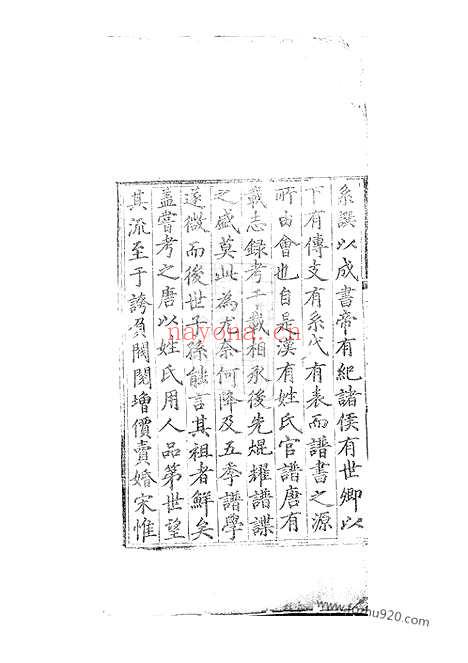 系譔以成書帝有紀諸侯有世卿以
下有傳支有系代有表而譜書之源
所由會也自是漢有姓氏官譜唐有
載志錄考千載相承後先焜耀譜諜
之盛莫此為尤奈何降及五季譜學
遂微而後世子孫能言其祖者鮮矣
蓋嘗考之唐以姓氏用人品第世望
其流至于誇負閥閱增價賣婚宋惟
nayona.cn
www.fozhu920.com